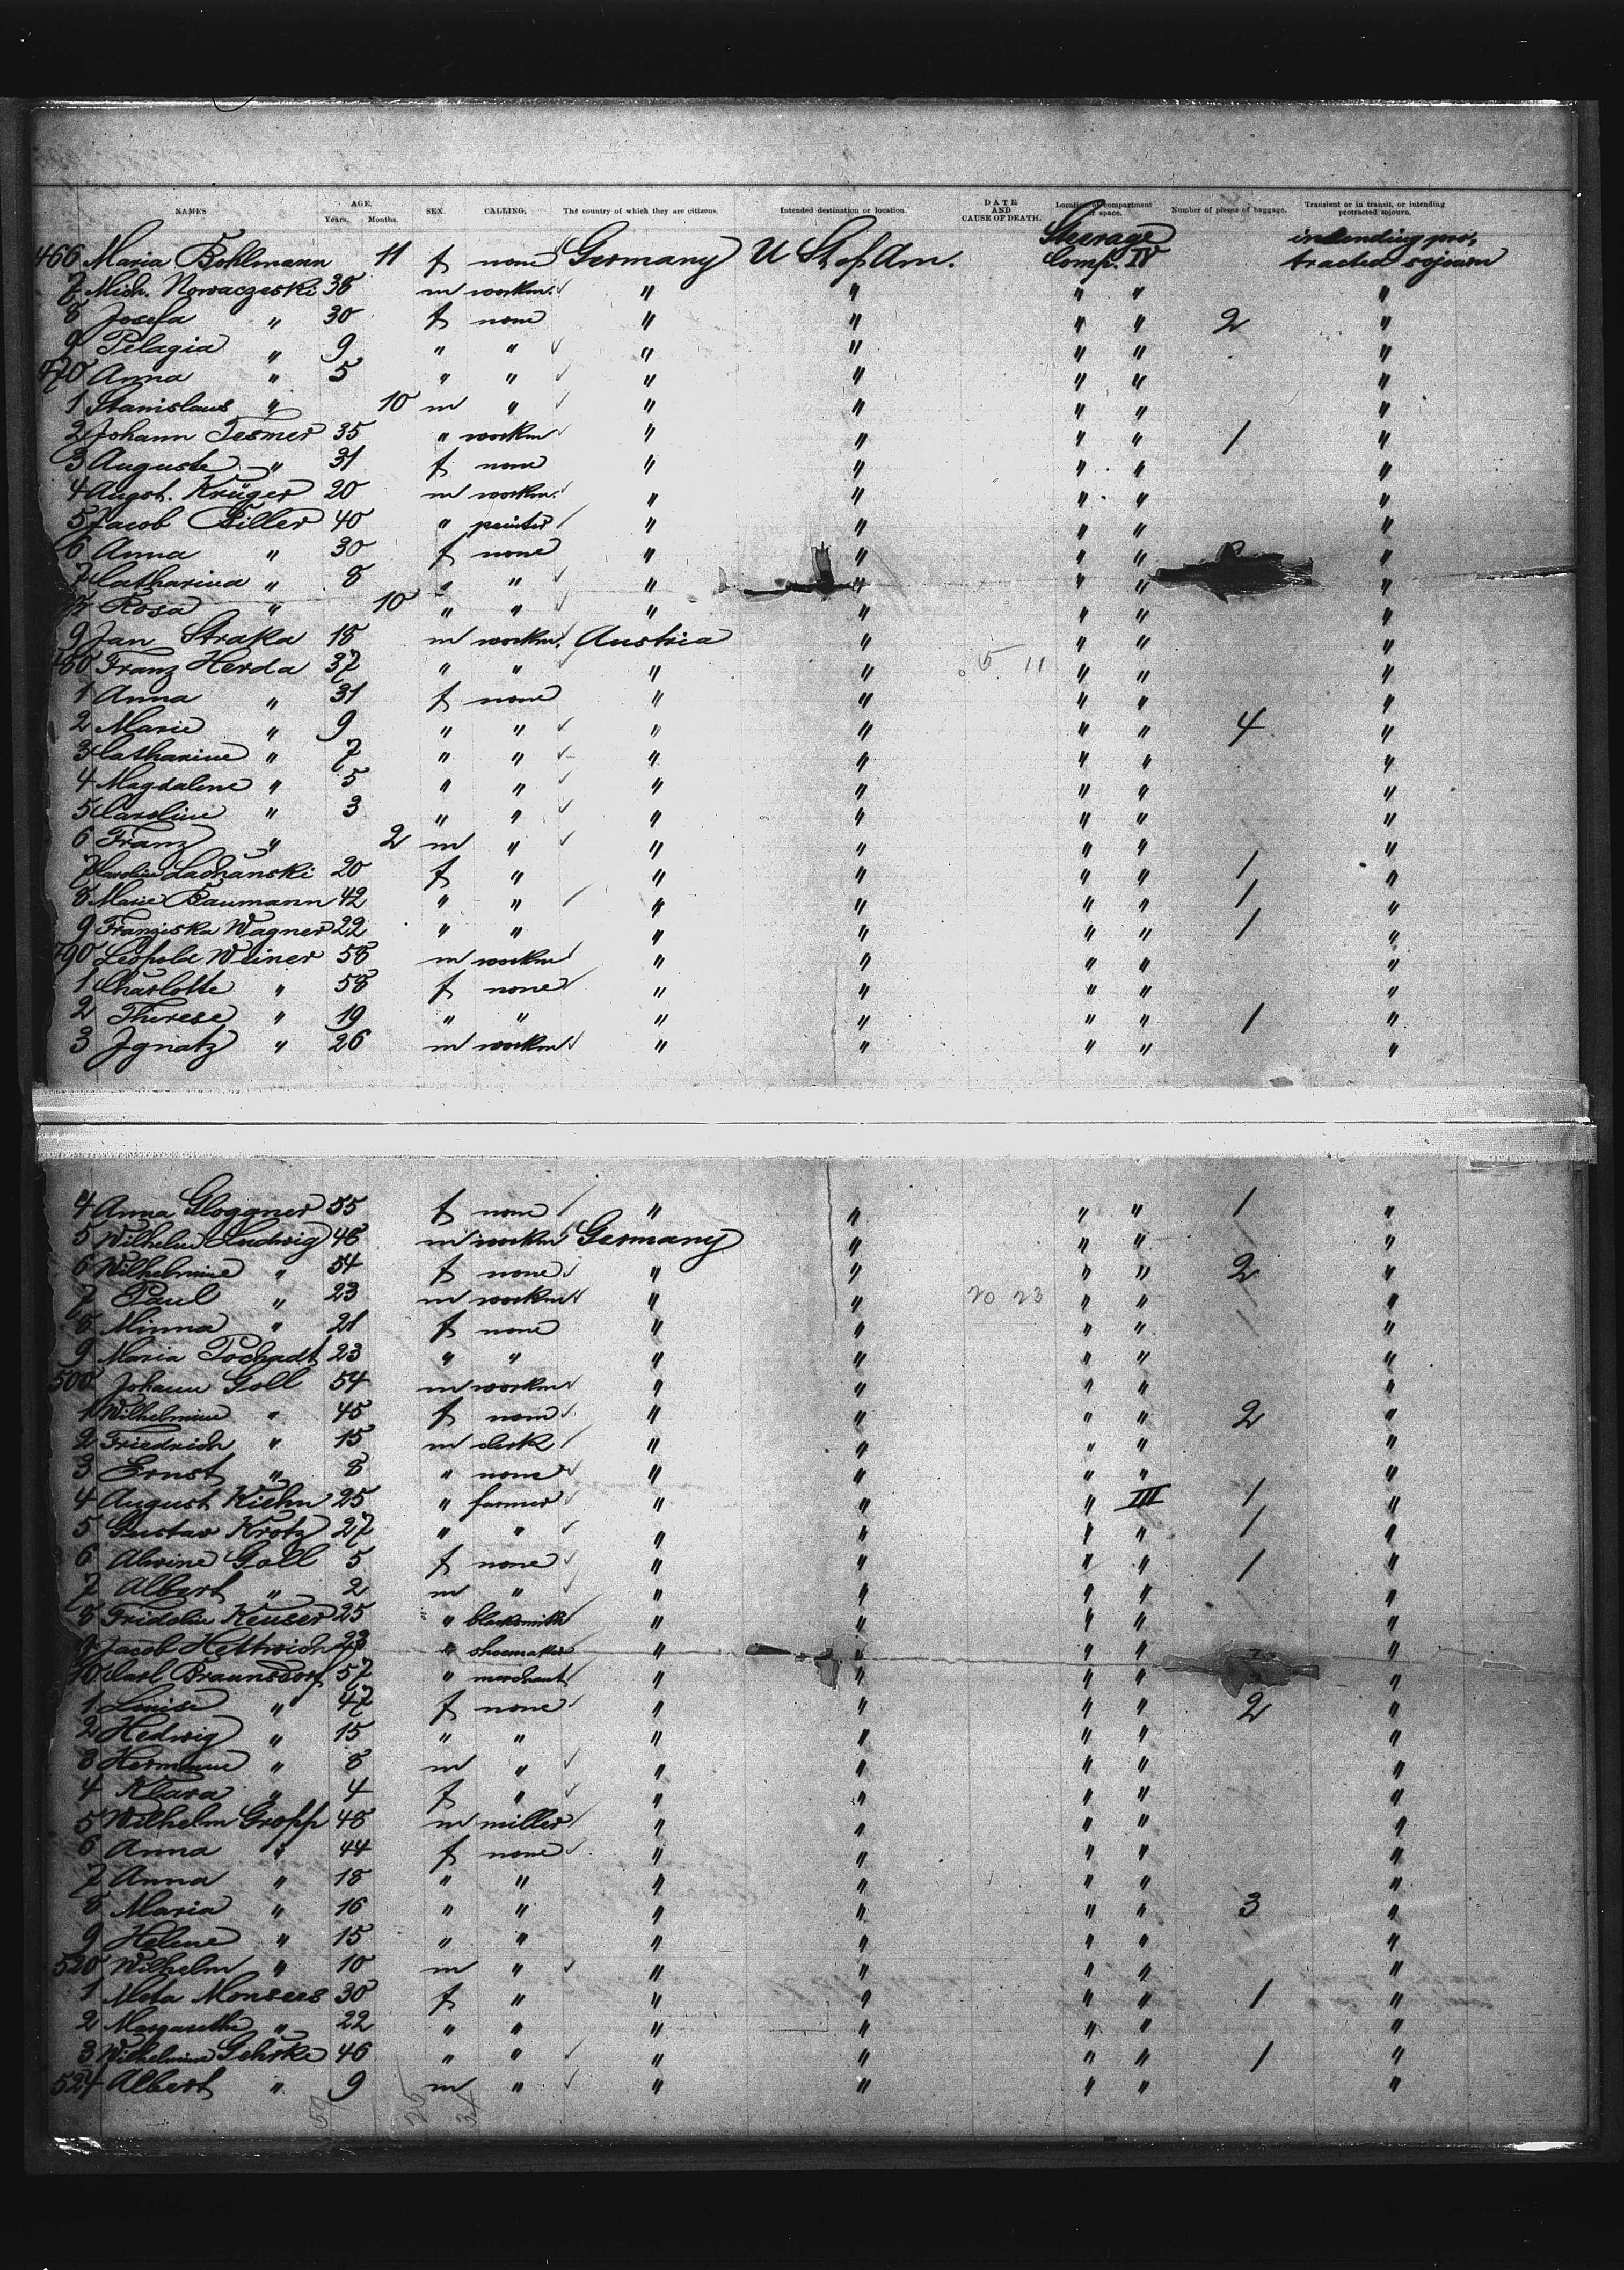 NAMES AGE. Years. Months. SEX. CALLING. The country of which they are citizens. Intended destination or location. DATE AND CAUSE OF DEATH. Location of compartment or space. Number of pieces of baggage. Transient or in transit, or intending protracted sojourn.
466 Maria Bohlmann 11 f none Germany U St of Am. Steerage Comp. IV intending protracted sojourn
7 Mich. Nowaczeski 38 m workm. " " " " "
8 Josefa " 30 f none " " " " 2 "
9 Pelagia " 9 " " " " " " "
470 Anna " 5 " " " " " " "
1 Stanislaus " 10 m " " " " " "
2 Johann Tesmer 35 " workm " " " " 1 "
3 Auguste " 31 f none " " " " "
4 Augst. Krüger 20 m workm. " " " " "
5 Jacob Biller 40 " painter " " " " "
6 Anna " 30 f none " " " " "
7 Catharina " 8 " " " " " " "
8 Rosa " 10 " " " " " " "
9 Jan Straka 18 m workm. Austria " " " "
480 Franz Herda 37 " " " " 5 11 " " "
1 Anna " 31 f none " " " " "
2 Marie " 9 " " " " " " 4 "
3 Catharine " 7 " " " " " " "
4 Magdalene " 5 " " " " " " "
5 Caroline " 3 " " " " " " "
6 Franz " 2 m " " " " " "
7 Caroline 20 f " " " " " 1 "
8 Marie Baumann 42 " " " " " " 1 "
9 Franziska Wagner 22 " " " " " " 1 "
490 Leopold Weiner 58 m workm " " " " "
1 Charlotte " 58 f none " " " " "
2 Therese " 19 " " " " " " 1 "
3 Ignatz " 26 m workm " " " " "
4 Anna Gloggner 55 f none " " " " 1 "
5 Wilhelm Ludwig 48 m workm Germany " " " "
6 Wilhelmine " 54 f none " " " " 2 "
7 Paul " 23 m workm " " 20 23 " " "
8 Minna " 21 f none " " " " "
9 Maria Pochadt 23 " " " " " " "
500 Johann Goll 54 m workm " " " " "
1 Wilhelmine " 45 f none " " " " 2 "
2 Friedrich " 15 m clerk " " " " "
3 Ernst " 8 " none " " " " "
4 August Kiehn 25 " farmer " " " III 1 "
5 Gustav Krotz 27 " " " " " " 1 "
6 Alwine Goll 5 f none " " " " 1 "
7 Albert " 2 m " " " " " "
8 Fridolin Keuser 25 " blacksmith " " " " "
9 Jacob Hettwich 23 " shoemaker " " " " "
10 Carl Braunsdorf 57 " merchant " " " " "
1 Louise " 47 f none " " " " 2 "
2 Hedwig " 15 " " " " " " "
3 Hermann " 8 m " " " " " "
4 Klara " 4 f " " " " " "
5 Wilhelm Gropp 48 m miller " " " " "
6 Anna " 44 f none " " " " "
7 Anna " 18 " " " " " " "
8 Maria " 16 " " " " " " 3 "
9 Helene " 15 " " " " " " "
520 Wilhelm " 10 m " " " " " "
1 Meta Monsees 30 f " " " " " 1 "
2 Margarethe " 22 " " " " " " "
3 Wilhelmine Gehrke 46 " " " " " " 1 "
524 Albert " 9 m " " " " " "
59 25 34